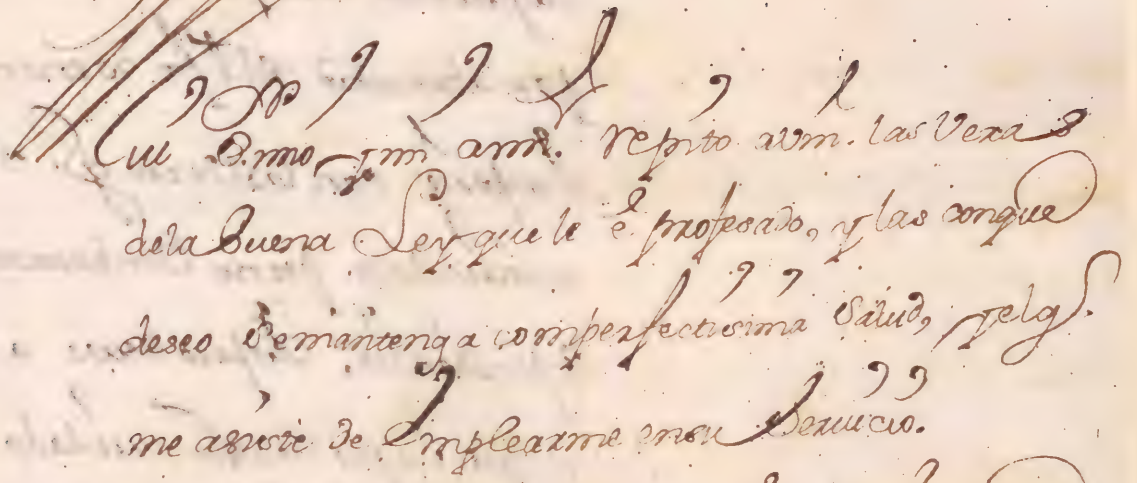 Mui S.r mio y mi am.o repito a Vm. las Veras
dela Buena Ley que le é profesado, y las conque
deseo Semantenga comperfectisima Salud, yelq.e
me asiste de Emplearme ensu Seruicio.